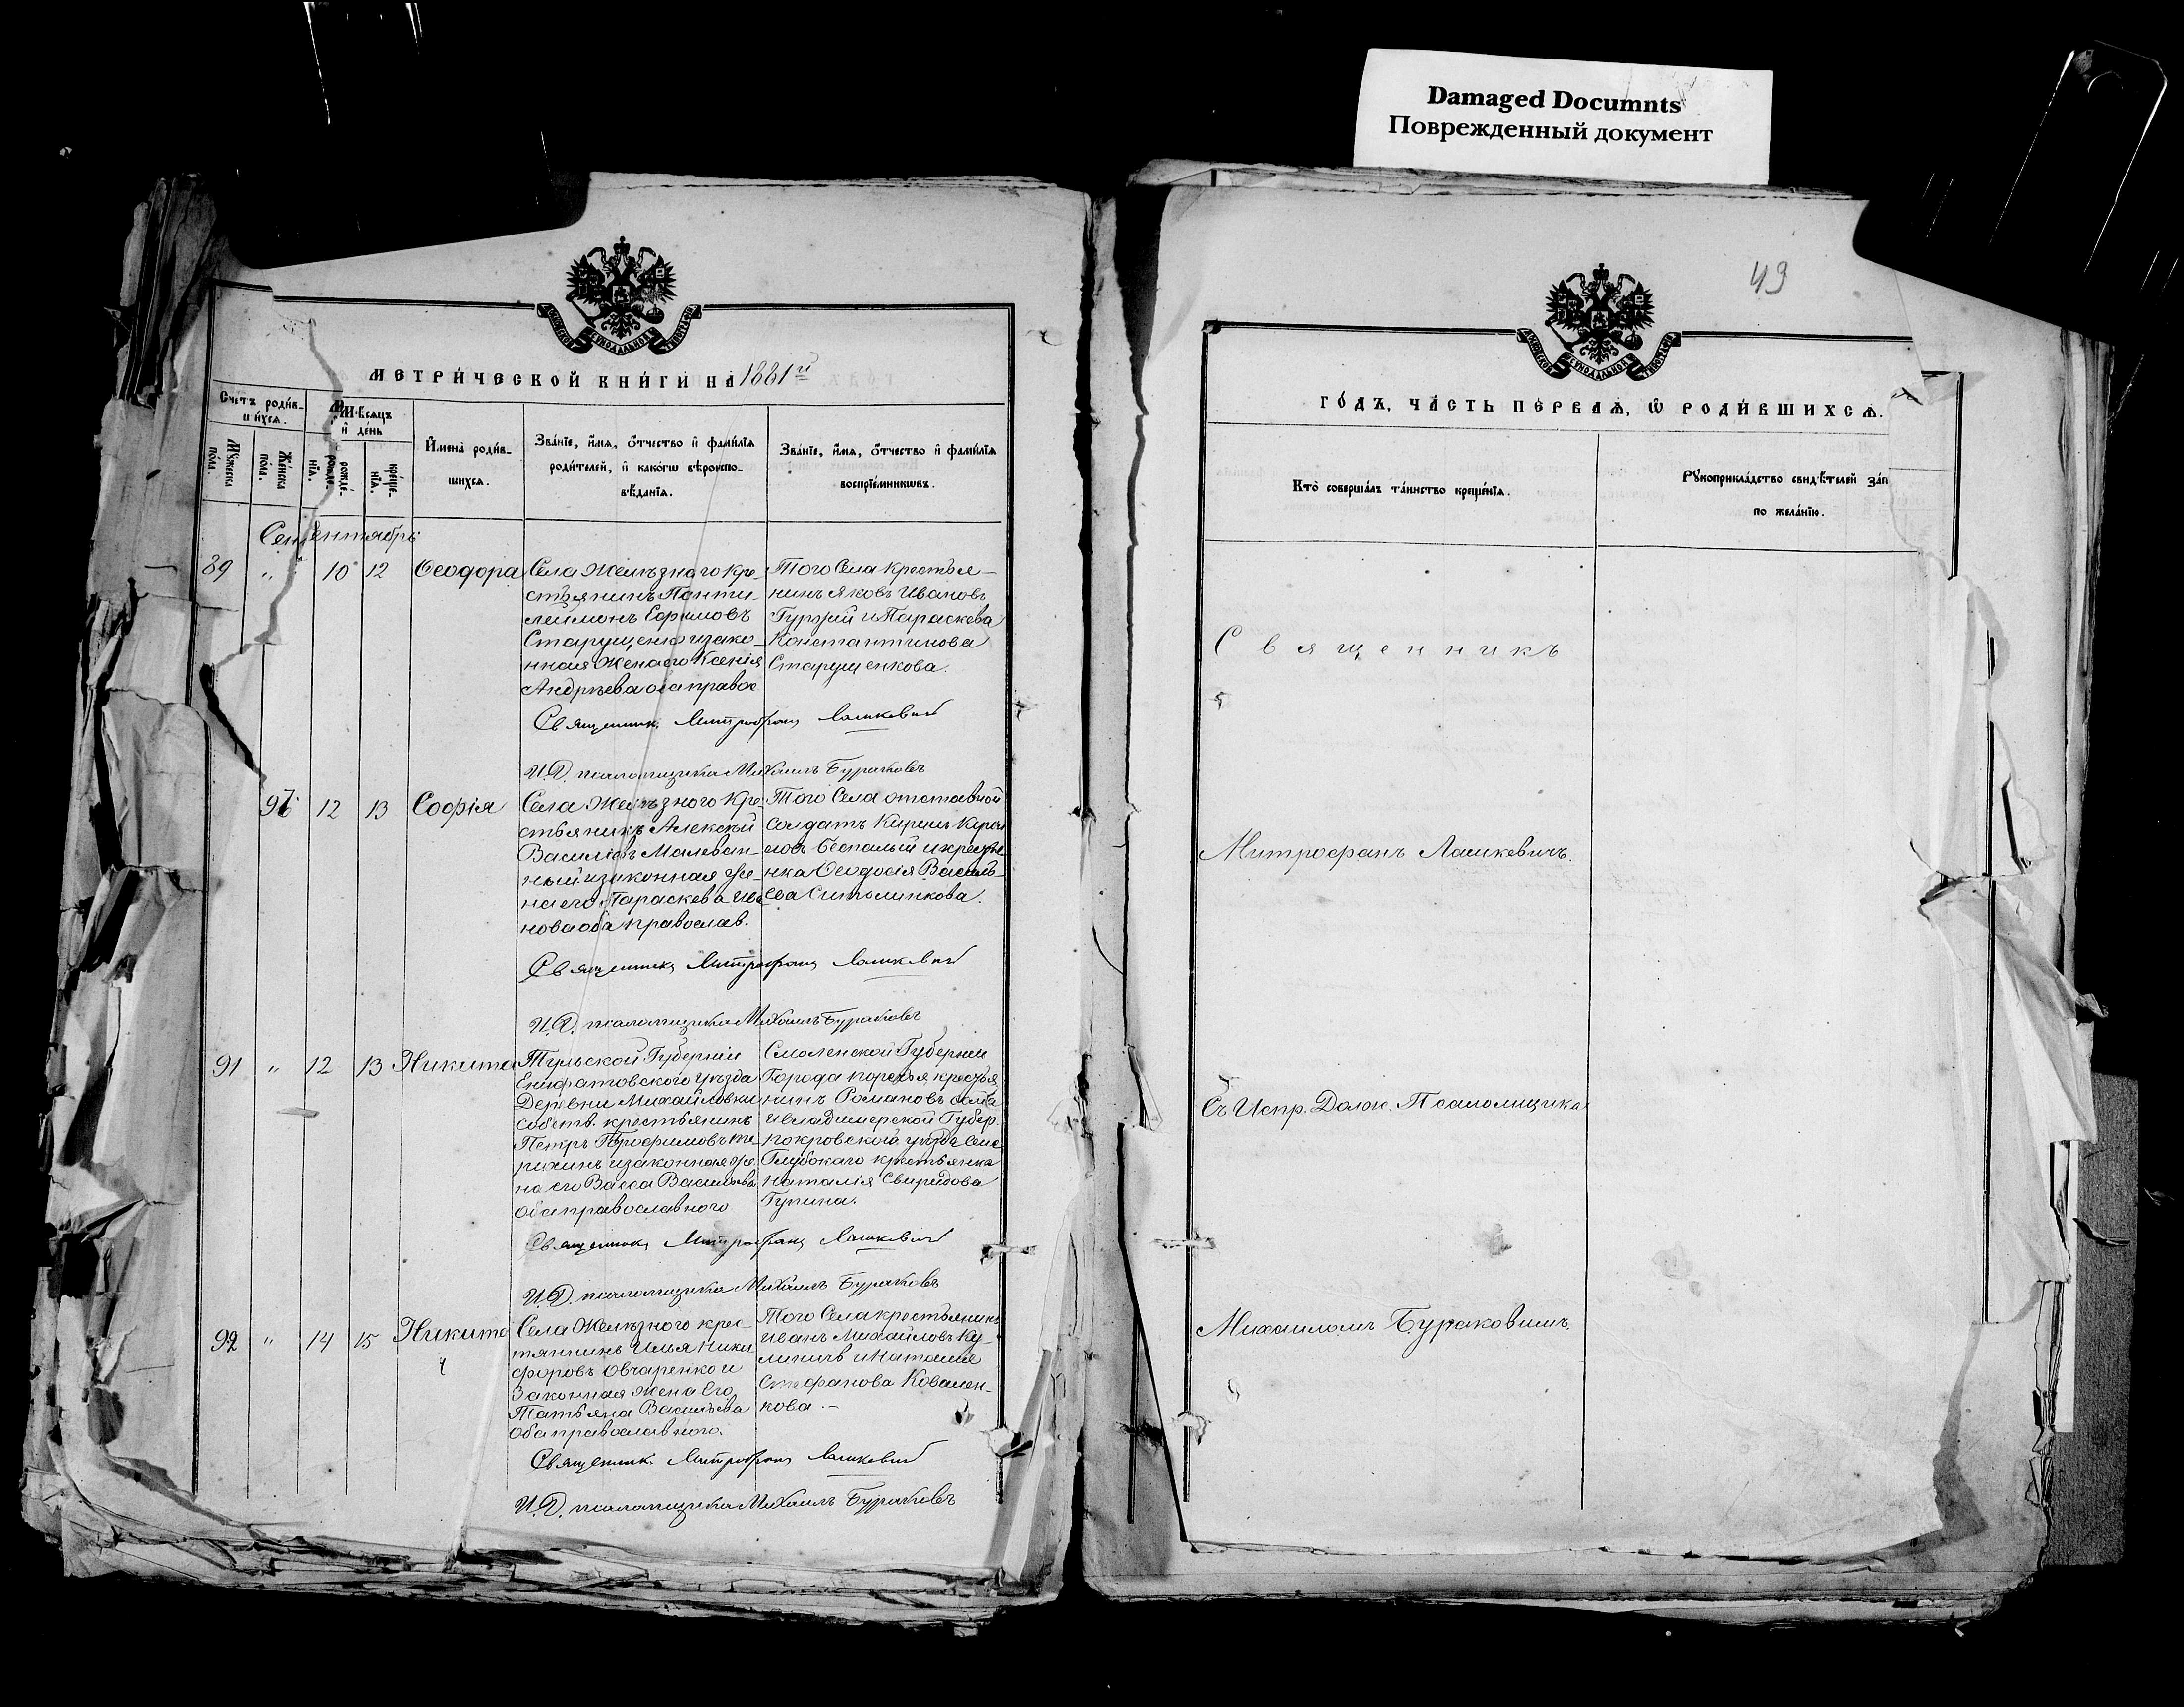 Damaged Documnts
Поврежденный документ
МЕТРИЧЕСКОЙ КНИГИ НА 1881й
Счетъ родив-
шихся.
Мѣсяцъ
и день
Мужеска пола.
Женска пола.
рожде-
нія.
креще-
нія.
Имена родив-
шихся.
Званіе, имя, отчество и фамилія
родителей, и какогѡ вѣроиспо-
вѣданія.
Званіе, имя, отчество и фамилія
воспріемникѡвъ.
Сентябрь
89 " 10 12 Ѳеодора
Села Желѣзнаго кре-
стьянинъ Панти-
леймонъ Ефимовъ
Старущенко и зако-
нная жена его Ксенія
Андреева оба правос
Того Села крестья-
нинъ Яковъ Ивановъ
Гурзій и Параскева
Константинова
Старущенкова.
Священникъ Митрофанъ Лашкевич
И.Д. псаломщика Михаилъ Бураковъ
12 13 Софія
Села Желѣзного Кре-
стьянинъ Алексѣй
Василіевъ Малеван-
ный и законная же-
на его Параскева Ива
нова оба православ.
Того Села отставной
солдатъ Кирилъ Кирил
ловъ Беспалый и крестья
нка Ѳеодосія Василь-
ева
Священникъ Митрофанъ Лашкевич
И.Д. псаломщика Михаилъ Бураковъ
91 " 12 13 Никита
Тульской Губерніи
Епифатовского уѣзда
Деревни Михайловки
собств. крестьянинъ
Петръ
и законная же
на его Васса Васильева
оба православного
Смоленской Губерніи
Города порѣчья крестья
нинъ Романовъ
и Владимерской Губер.
покровской уѣзда Села
Глубокаго крестьянка
Наталія Свиридова
Гупина.
Священникъ Митрофанъ Лашкевич
И.Д. псаломщика Михаилъ Бураковъ
92 " 14 15 Никита
Села Желѣзного крес-
тянинъ Илья Ники
форовъ Овчаренко и
Законная жена Его
Татьяна Васильева
оба православного.
Того Села крестьянинъ
Иванъ Михайловъ Ку-
личъ и Наталія
Стефанова Ковален-
кова.-
Священникъ Митрофанъ Лашкевич
И.Д. псаломщика Михаилъ Бураковъ
49
ГОДЪ, ЧАСТЬ ПЕРВАЯ, Ѡ РОДИВШИХСЯ.
Кто совершалъ таинство крещенія.
Рукоприкладство свидѣтелей зап
по желанію.
Священникъ
Митрофанъ Лашкевичъ.
Съ Испр. Долж. Псаломщика
Михаиломъ Бураковимъ.